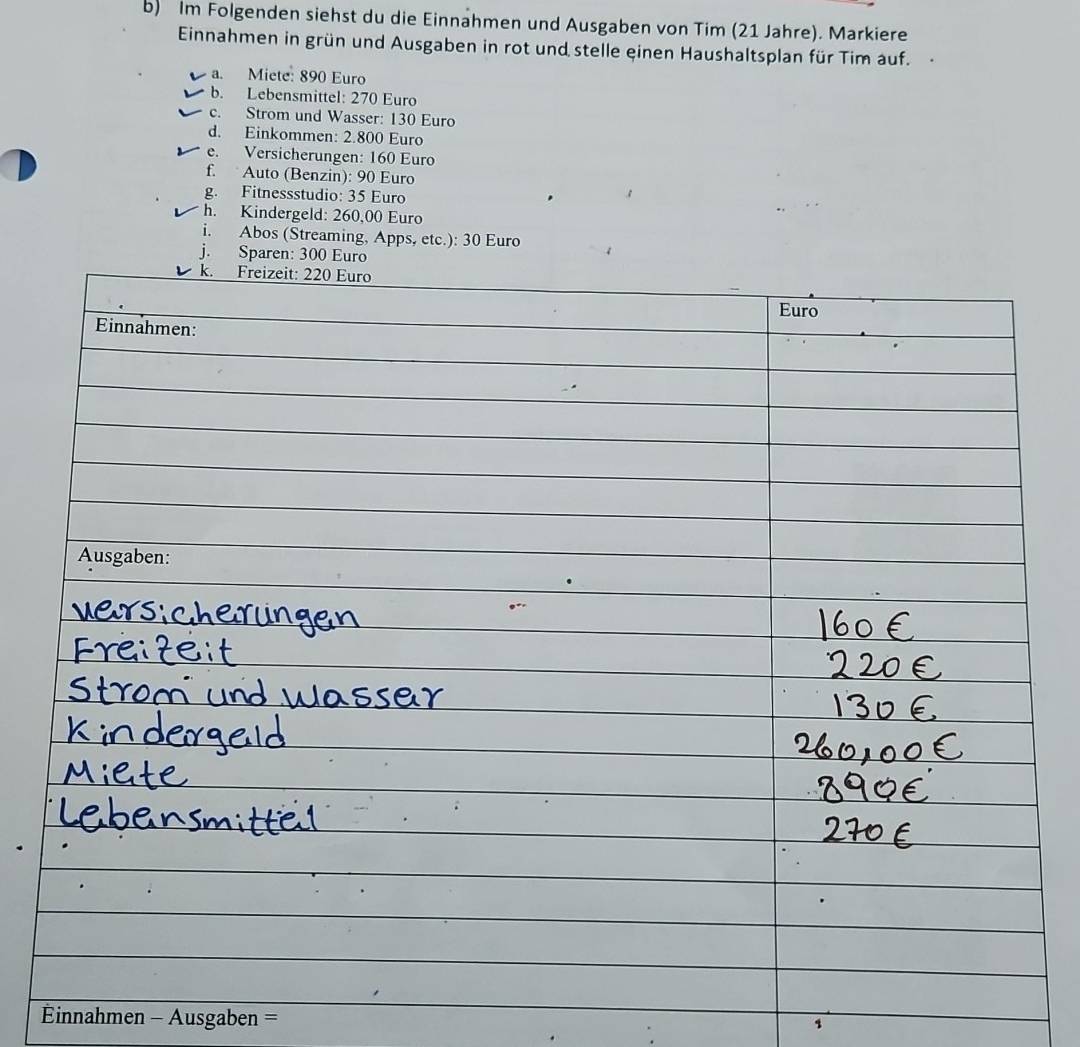 b) Im Folgenden siehst du die Einnahmen und Ausgaben von Tim (21 Jahre). Markiere
Einnahmen in grün und Ausgaben in rot und stelle einen Haushaltsplan für Tim auf.
a. Miete: 890 Euro
b. Lebensmittel: 270 Euro
c. Strom und Wasser: 130 Euro
d. Einkommen: 2.800 Euro
e. Versicherungen: 160 Euro
f. Auto (Benzin): 90 Euro
g. Fitnessstudio: 35 Euro
h. Kindergeld: 260,00 Euro
i. Abos (Streaming, Apps, etc.): 30 Euro
j. Sparen: 300 Euro
k. Freizeit: 220 Euro
Euro
Einnahmen:
Ausgaben:
Versicherungen 160 €
Freizeit 220 €
Strom und Wasser 130 €
Kindergeld 260,00 €
Miete 890 €
Lebensmittel 270 €
Einnahmen – Ausgaben =